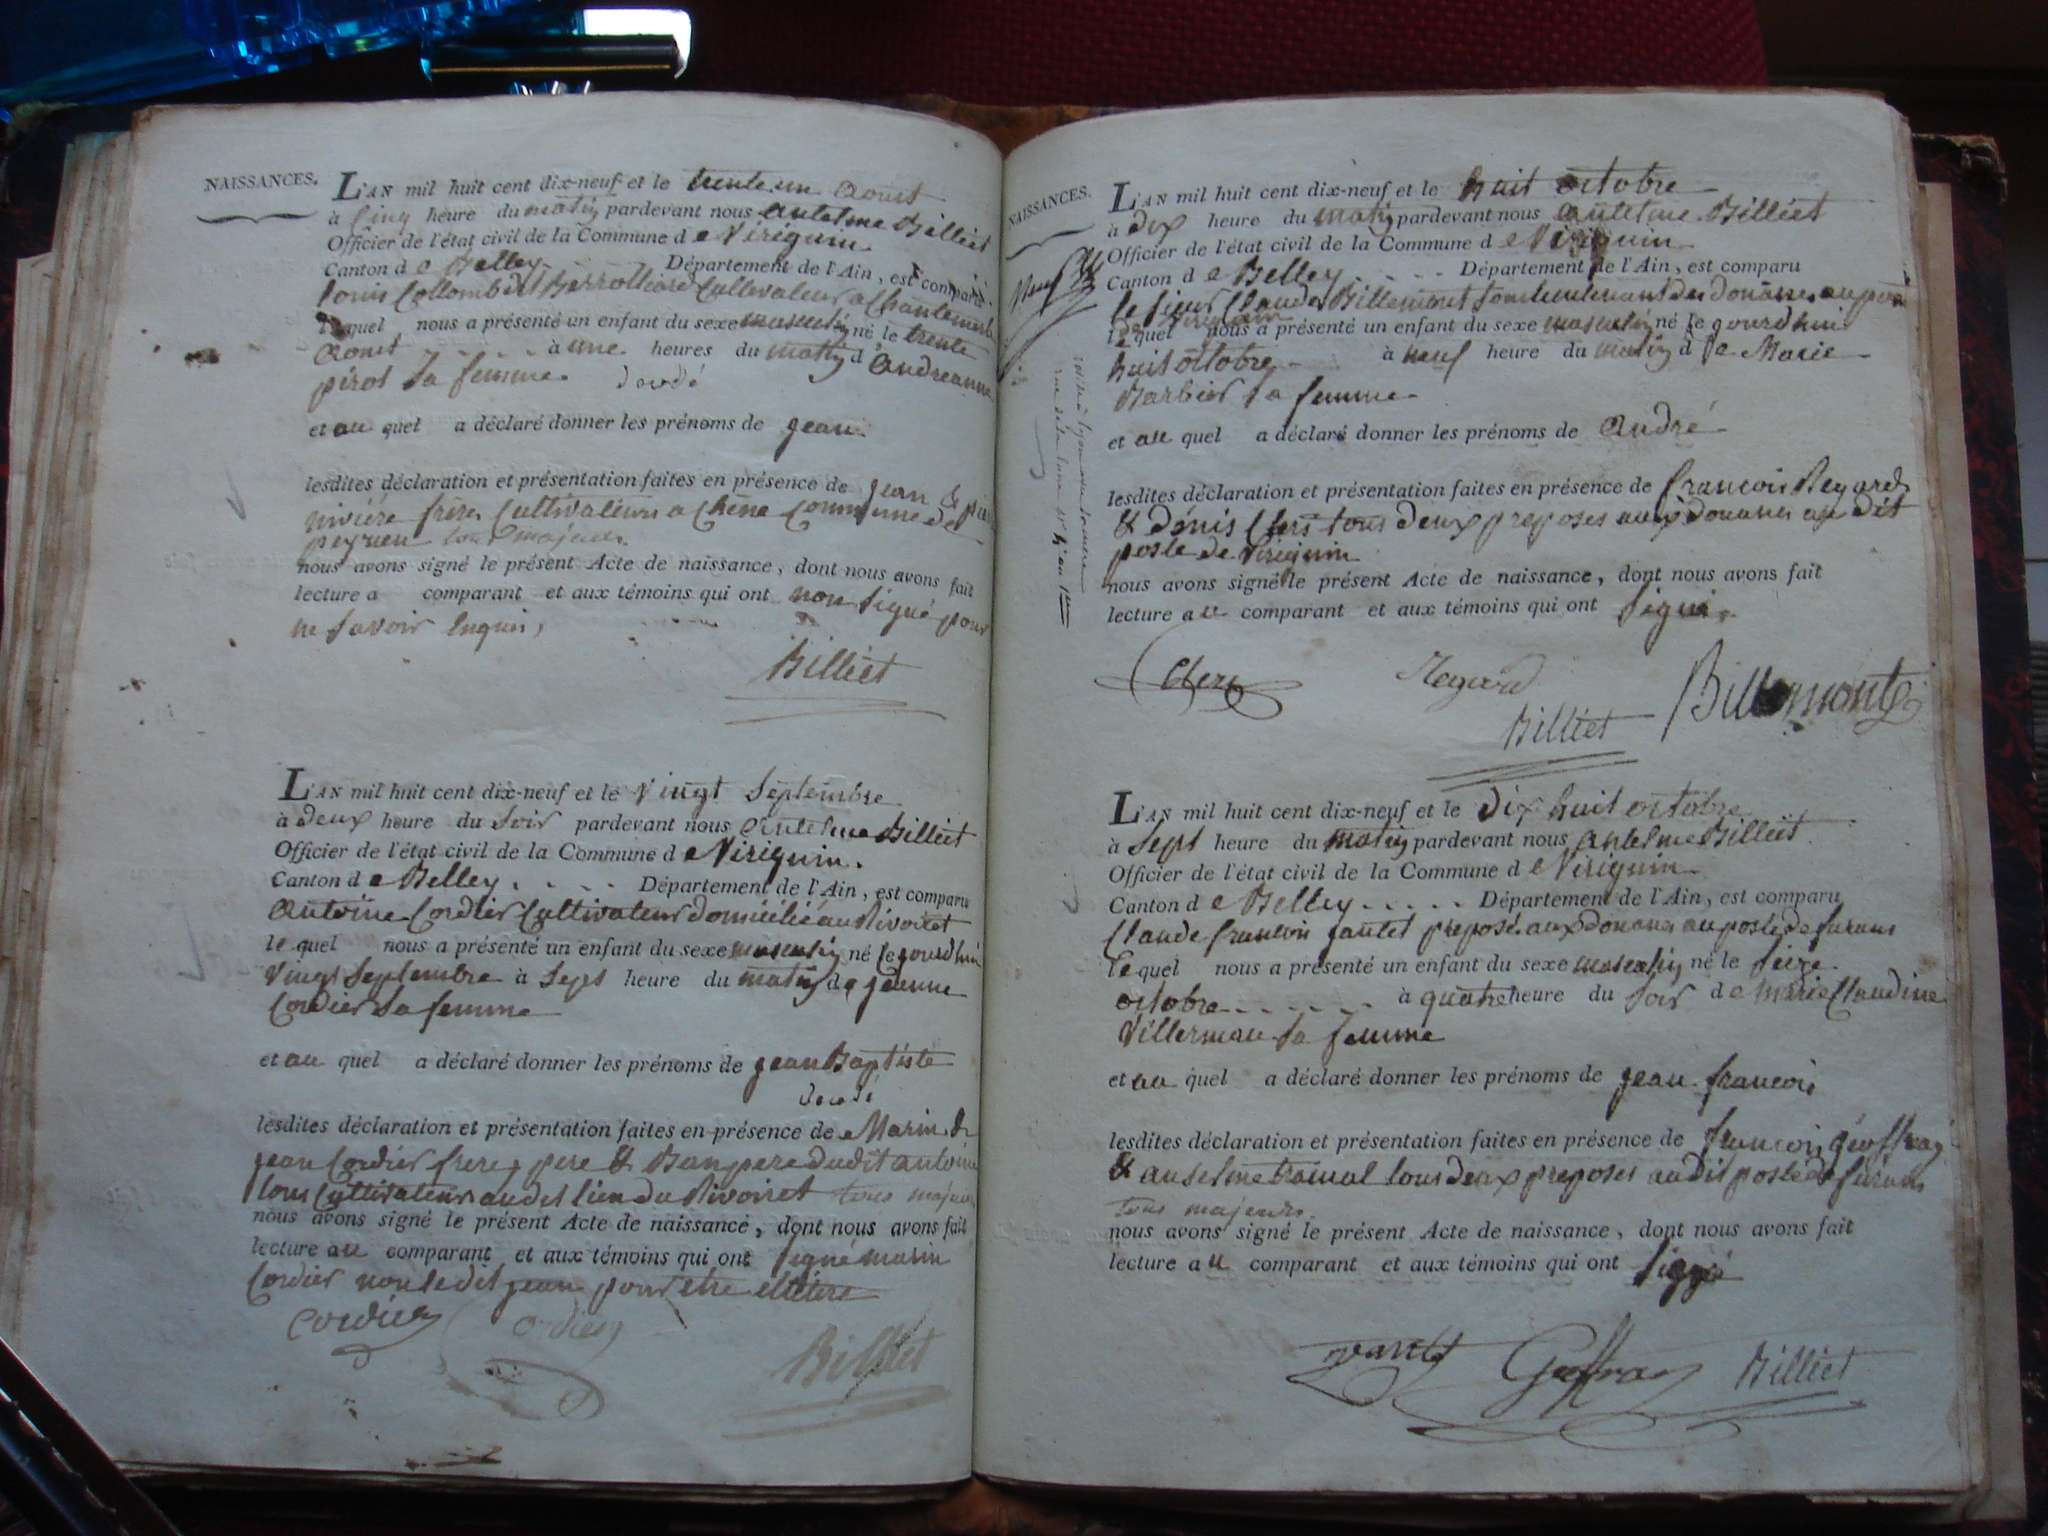 NAISSANCES.
L'AN mil huit cent dix-neuf et le trente un aoust
à cinq heure du matin pardevant nous antelme Billiet
Officier de l'état civil de la Commune d e Virignin.
Canton d e Belley Département de l'Ain, est comparu
louis Collombet cultivateur a
lequel nous a présenté un enfant du sexe masculin né le trente
aoust à une heures du matin d' andreanne
pirot sa femme. décédé
et au quel a déclaré donner les prénoms de jean
lesdites déclaration et présentation faites en présence de jean &
rivière frères cultivateurs a Chêne Commune de
peyrieu tous majeurs.
nous avons signé le présent Acte de naissance, dont nous avons fait
lecture a comparant et aux témoins qui ont non signé pour
ne savoir enquis,
Billiet
L'AN mil huit cent dix-neuf et le vingt Septembre
à deux heure du soir pardevant nous antelme Billiet
Officier de l'état civil de la Commune d e Virignin.
Canton d e Belley Département de l'Ain, est comparu
antoine Cordier Cultivateur domicilié au Rivoiret
lequel nous a présenté un enfant du sexe masculin né le jourdhui
vingt Septembre à sept heure du matin de jeanne
Cordier sa femme
et au quel a déclaré donner les prénoms de jean Baptiste
décédé
lesdites déclaration et présentation faites en présence de Marin &
jean Cordier frere, pere & Baupere dudit antoine
tous Cultivateurs audit lieu du Rivoiret tous majeurs
nous avons signé le présent Acte de naissance, dont nous avons fait
lecture au comparant et aux témoins qui ont signé marin
Cordier non ledit jean pour etre
Cordier
Billiet
NAISSANCES.
L'AN mil huit cent dix-neuf et le huit octobre
à dix heure du matin pardevant nous antelme Billiet
Officier de l'état civil de la Commune d e Virignin
Canton d e Belley Département de l'Ain, est comparu
le sieur Claude Billemont Sous lieutenant des douanes au poste
de Virignin
lequel nous a présenté un enfant du sexe masculin né le jourdhui
huit octobre à neuf heure du matin d e Marie
Barbier sa femme
et au quel a déclaré donner les prénoms de andré
lesdites déclaration et présentation faites en présence de françois Regard
& dénis Clerc tous deux preposes aux douanes au dit
poste de Virignin
nous avons signé le présent Acte de naissance, dont nous avons fait
lecture au comparant et aux témoins qui ont signé.
Clerc Regard Billemont
Billiet
L'AN mil huit cent dix-neuf et le dix huit octobre
à Sept heure du matin pardevant nous antelme Billiet
Officier de l'état civil de la Commune d e Virignin
Canton d e Belley Département de l'Ain, est comparu
Claude francois preposé aux douanes au poste de furans
lequel nous a présenté un enfant du sexe masculin né le seize
octobre à quatre heure du soir de marie Claudine
Villerman sa femme
et au quel a déclaré donner les prénoms de jean francois
lesdites déclaration et présentation faites en présence de francois geoffray
& anselme tous deux preposes audit poste de furans
tous majeurs.
nous avons signé le présent Acte de naissance, dont nous avons fait
lecture au comparant et aux témoins qui ont signé
Geffray Billiet